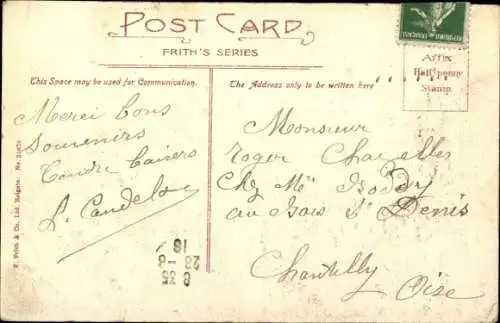 POST CARD
FRITH'S SERIES
This Space may be used for Communication.
The Address only to be written here
Affix
Halfpenny
Stamp
Merci bons
Souvenirs
Tendre baisers
Monsieur
Roger Chazelles
Chez Mr
au Bois St Denis
Chantilly Oise
F. Frith & Co. Ltd. Reigate. No.
18
28 - 8
8 35